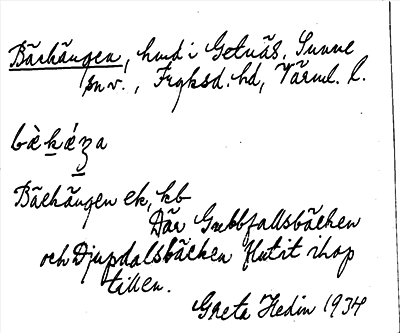 Bäckängen, hmd i Getnäs, Sunne
sn v., Fryksd. hd, Värml. l.
Bäckängen ek, kb
Där Gubbfallsbäcken
och Djupdalsbäcken flutit ihop
till en.
Greta Hedin 1934